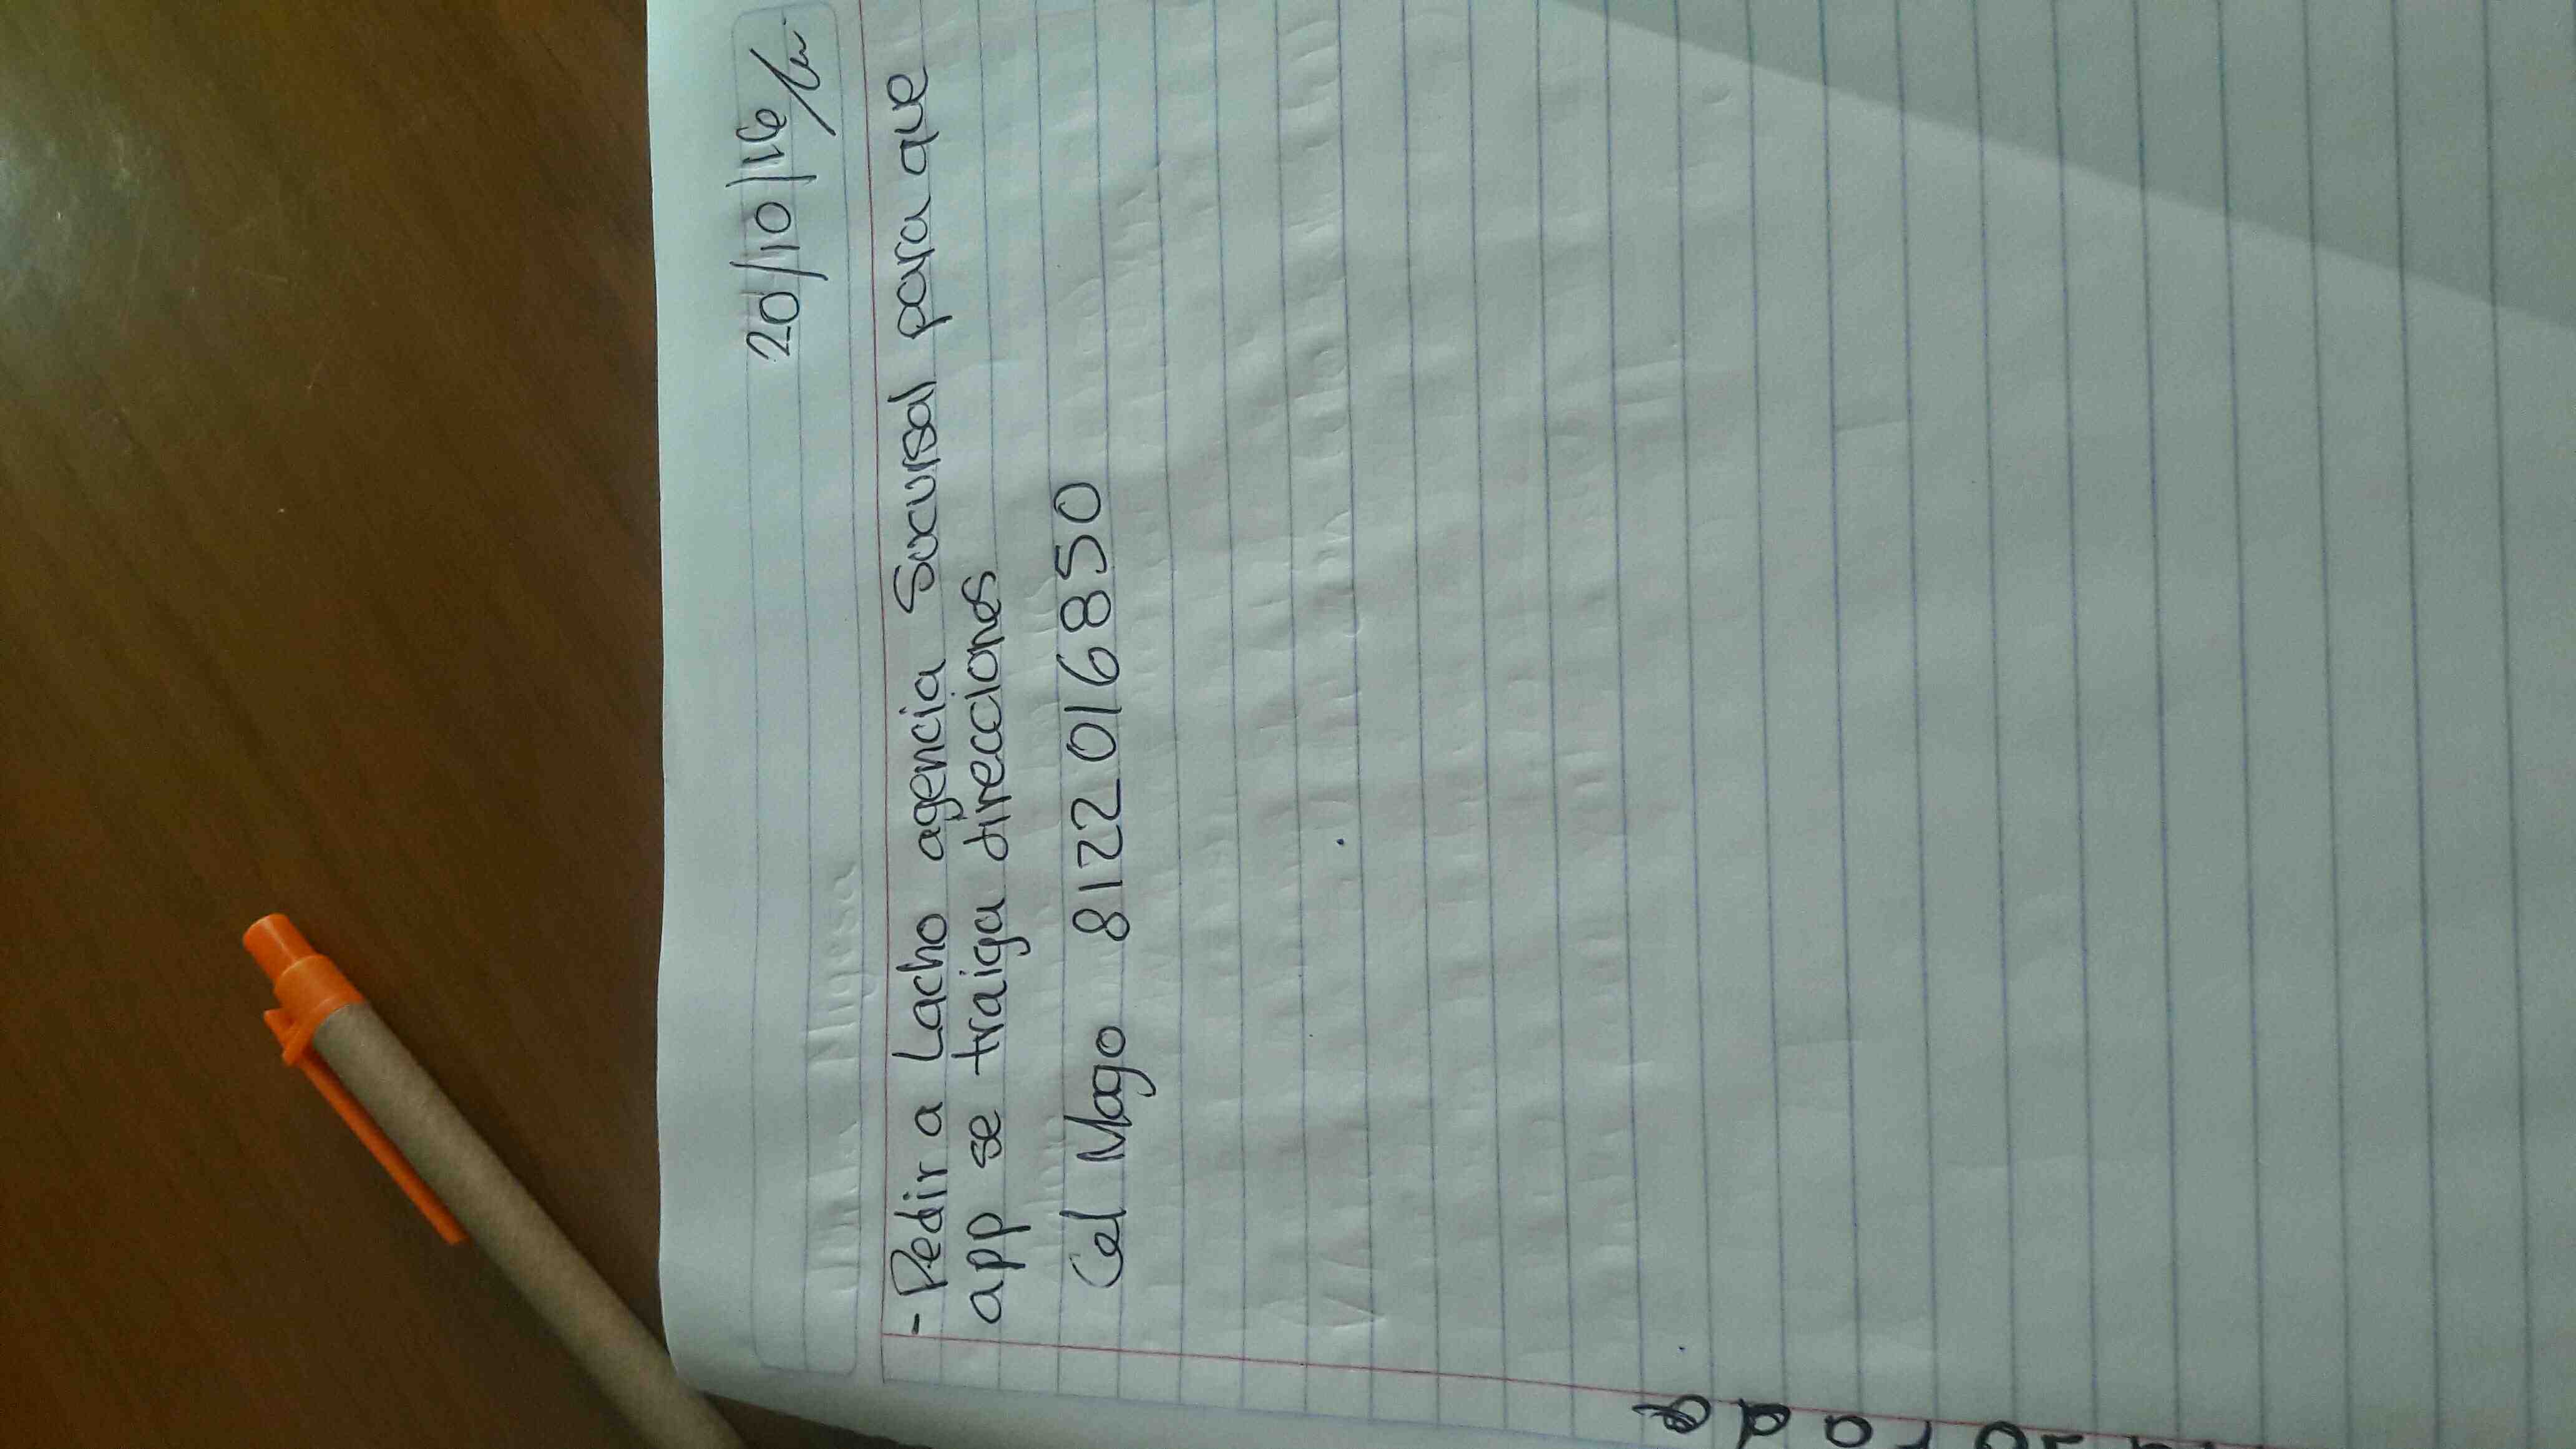 20/10/16
- Pedir a Lacho agencia Sucursal para que
app se traiga direcciones
Cel Mago 8122016850